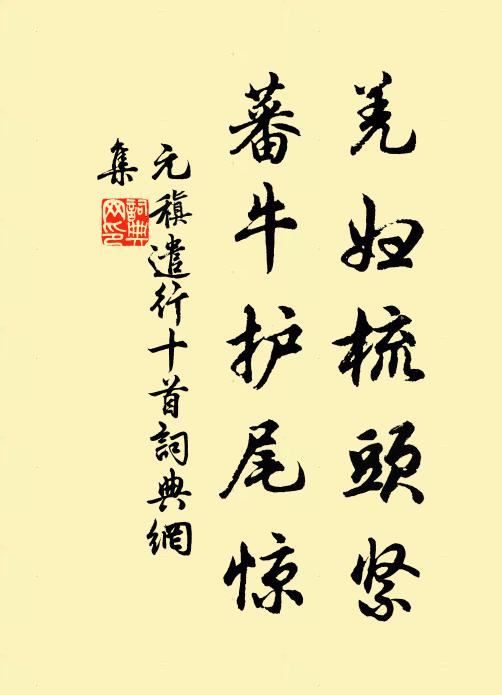 羌妇梳頭紧
蕃牛护尾惊
元稹遣行十首詞典網
集
詞典网印